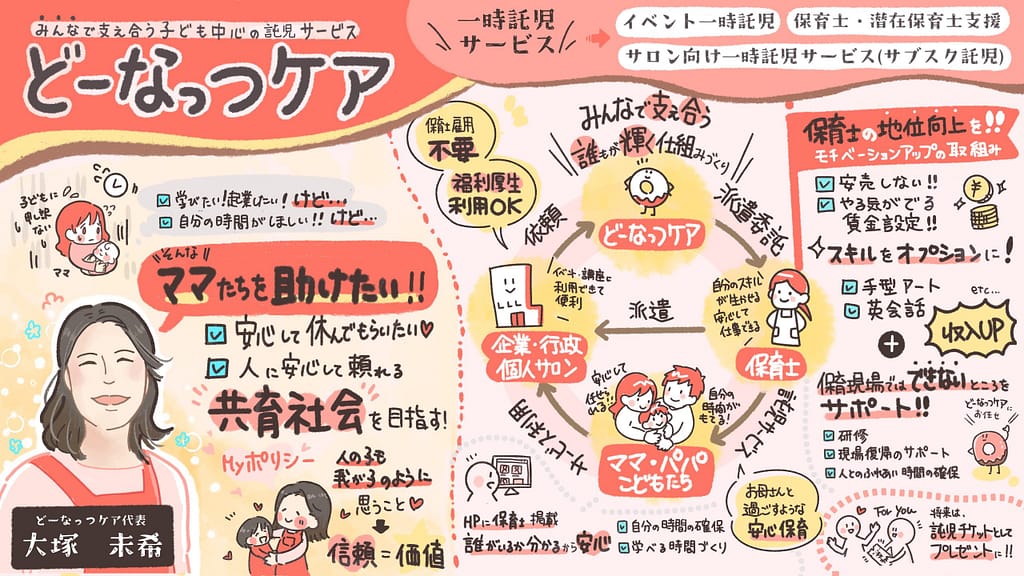 みんなで支え合う子ども中心の託児サービス
どーなっつケア
一時託児
サービス
イベント一時託児
保育士・潜在保育士支援
サロン向け一時託児サービス(サブスク託児)
子どもに
申し訳
ない
ママ
学びたい!起業したい!けど…
自分の時間がほしい!!けど…
そんな
ママたちを助けたい!!
安心して休んでもらいたい♡
人に安心して頼れる
共育社会を目指す!
Myポリシー
人の子も
我が子のように
思うこと♡
信頼=価値
どーなっつケア代表
大塚 未希
保育士雇用
不要
福利厚生
利用OK
みんなで支え合う
誰もが輝く仕組みづくり
どーなっつケア
依頼
派遣委託
イベント・講座で
利用できて
便利
企業・行政
個人サロン
派遣
自分のスキル
が生かせる
安心して
仕事できる
保育士
サービス利用
託児サービス
安心して
任せられる
自分の
時間が
もてる!
ママ・パパ
こどもたち
HPに保育士掲載
誰がいるか分かるから安心
自分の時間の確保
学べる時間づくり
お母さんと
過ごすような
安心保育
保育士の地位向上を!!
モチベーションアップの取組み
安売しない!!
やる気がでる
賃金設定!!
スキルをオプションに!
手型アート
英会話
etc...
収入UP
保育現場ではできないところを
サポート!!
研修
現場復帰のサポート
人とのふれあい時間の確保
どーなっつケアに
お任せ
For You
将来は、
託児チケットとして
プレゼントに!!